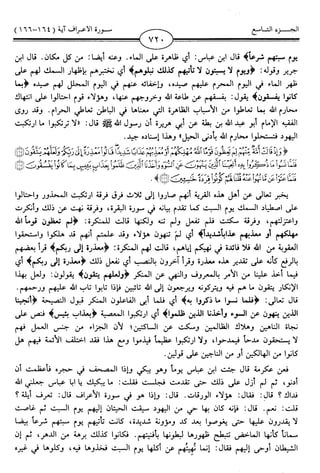 الجزء التاسع
سورة الأعراف آية (١٦٤-١٦٦)
٧٢٠
يوم سبتهم شرعاً﴾ قال ابن عباس: أي ظاهرة على الماء. وعنه أيضاً: من كل مكان. قال ابن
جرير وقوله: ﴿ويوم لا يسبتون لا تأتيهم كذلك نبلوهم﴾ أي نختبرهم بإظهار السمك لهم على
ظهر الماء في اليوم المحرم عليهم صيده، وإخفائه عنهم في اليوم المحلل لهم صيده ﴿بما
كانوا يفسقون﴾ يقول: بفسقهم عن طاعة الله وخروجهم عنها، وهؤلاء قوم احتالوا على انتهاك
محارم الله بما تعاطوا من الأسباب الظاهرة التي معناها في الباطن تعاطي الحرام. وقد روى
الفقيه الإمام أبو عبد الله بن بطة عن أبي هريرة أن رسول الله ﷺ قال: «لا ترتكبوا ما ارتكبت
اليهود فتستحلوا محارم الله بأدنى الحيل» وهذا إسناده جيد.
يخبر تعالى عن أهل هذه القرية أنهم صاروا إلى ثلاث فرق فرقة ارتكبت المحذور واحتالوا
على اصطياد السمك يوم السبت كما تقدم بيانه في سورة البقرة، وفرقة نهت عن ذلك وأنكرت
واعتزلتهم، وفرقة سكتت فلم تفعل ولم تنه ولكنها قالت للمنكرة: ﴿لم تعظون قوماً الله
مهلكهم أو معذبهم عذاباً شديداً﴾ أي لمَ تنهون هؤلاء وقد علمتم أنهم قد هلكوا واستحقوا
العقوبة من الله فلا فائدة في نهيكم إياهم، قالت لهم المنكرة: ﴿معذرة إلى ربكم﴾ قرأ بعضهم
بالرفع كأنه على تقدير هذه معذرة وقرأ آخرون بالنصب أي نفعل ذلك ﴿معذرة إلى ربكم﴾ أي
فيما أخذ علينا من الأمر بالمعروف والنهي عن المنكر ﴿ولعلهم يتقون﴾ يقولون: ولعل بهذا
الإنكار يتقون ما هم فيه ويتركونه ويرجعون إلى الله تائبين فإذا تابوا تاب الله عليهم ورحمهم.
قال تعالى: ﴿فلما نسوا ما ذكروا به﴾ أي فلما أبى الفاعلون المنكر قبول النصيحة ﴿أنجينا
الذين ينهون عن السوء وأخذنا الذين ظلموا﴾ أي ارتكبوا المعصية ﴿بعذاب بئيس﴾ فنص على
نجاة الناهين وهلاك الظالمين وسكت عن الساكتين؛ لأن الجزاء من جنس العمل فهم
لا يستحقون مدحاً فيمدحوا، ولا ارتكبوا عظيماً فيذموا ومع هذا فقد اختلف الأئمة فيهم هل
كانوا من الهالكين أو من الناجين على قولين.
فعن عكرمة قال جئت ابن عباس يوماً وهو يبكي وإذا المصحف في حجره فأعظمت أن
أدنو، ثم لم أزل على ذلك حتى تقدمت فجلست فقلت: ما يبكيك يا أبا عباس جعلني الله
فداك؟ قال: فقال: هؤلاء الورقات. قال: وإذا هو في سورة الأعراف قال: تعرف أيلة ؟
قلت: نعم. قال: فإنه كان بها حي من اليهود سيقت الحيتان إليهم يوم السبت ثم غاصت
لا يقدرون عليها حتى يغوصوا بعد كد ومؤنة شديدة، كانت تأتيهم يوم سبتهم شرعاً بيضاً
سماناً كأنها الماخض تنبطح ظهورها لبطونها بأفنيتهم. فكانوا كذلك برهة من الدهر، ثم إن
الشيطان أوحى إليهم فقال: إنما نُهيتم عن أكلها يوم السبت فخذوها فيه، وكلوها في غيره